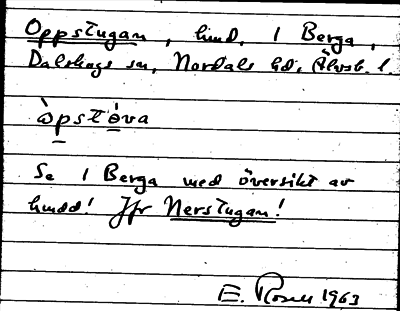 Oppstugan, hmd, 1 Berga,
Dalskogs sn, Nordals hd, Älvsb. l.
òpstòva
Se 1 Berga med översikt av
hmdd! Jfr Nerstugan!
E. Rosell 1963